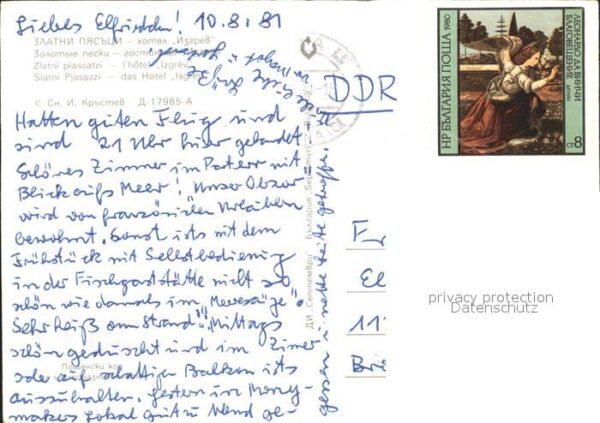 Liebes Elfriedchen! 10.8.81
ЗЛАТНИ ПЯСЪЦИ – хотел „Изгрев"
Золотые пески –
Zlatni piassatzi – l'hôtel „Izgrev
Slatni Pjassazi – das Hotel „Isgrev
© Сн. И. Кръстев Д-17985-А
Hatten guten Flug und
sind 21 Uhr hier gelandet.
Schönes Zimmer im Patern mit
Blick aufs Meer! Unser Obzor
wird von französischen Urlaubern
bewohnt. Sonst ists mit dem
Frühstück mit Selbstbedienung
in der Fischgaststätte nicht so
schön wie damals im „Meeresauge".
Sehr heiß am Strand! Mittags
schön geduscht und im Zimmer
oder auf schattigen Balkon ists
auszuhalten. Gestern im Money-
makers Lokal gut zu Abend ge-
gessen u. nette Leute getroffen.
ДИ „Септември" България
DDR
НР БЪЛГАРИЯ ПОЩА 1980
ЛЕОНАРДО ДА ВИНЧИ
БЛАГОВЕЩЕНИЕ
8 СТ
Fr
El
11
Bri
privacy protection
Datenschutz